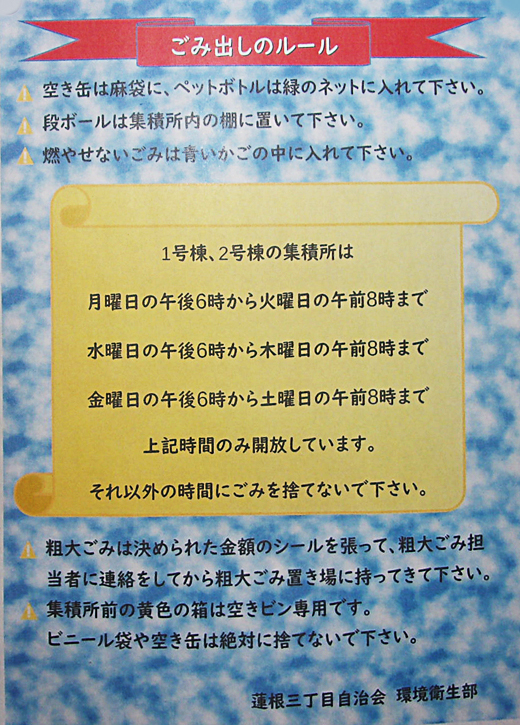 ごみ出しのルール
空き缶は麻袋に、ペットボトルは緑のネットに入れて下さい。
段ボールは集積所内の棚に置いて下さい。
燃やせないごみは青いかごの中に入れて下さい。
1号棟、2号棟の集積所は
月曜日の午後6時から火曜日の午前8時まで
水曜日の午後6時から木曜日の午前8時まで
金曜日の午後6時から土曜日の午前8時まで
上記時間のみ開放しています。
それ以外の時間にごみを捨てないで下さい。
粗大ごみは決められた金額のシールを張って、粗大ごみ担
当者に連絡をしてから粗大ごみ置き場に持ってきて下さい。
集積所前の黄色の箱は空きビン専用です。
ビニール袋や空き缶は絶対に捨てないで下さい。
蓮根三丁目自治会 環境衛生部